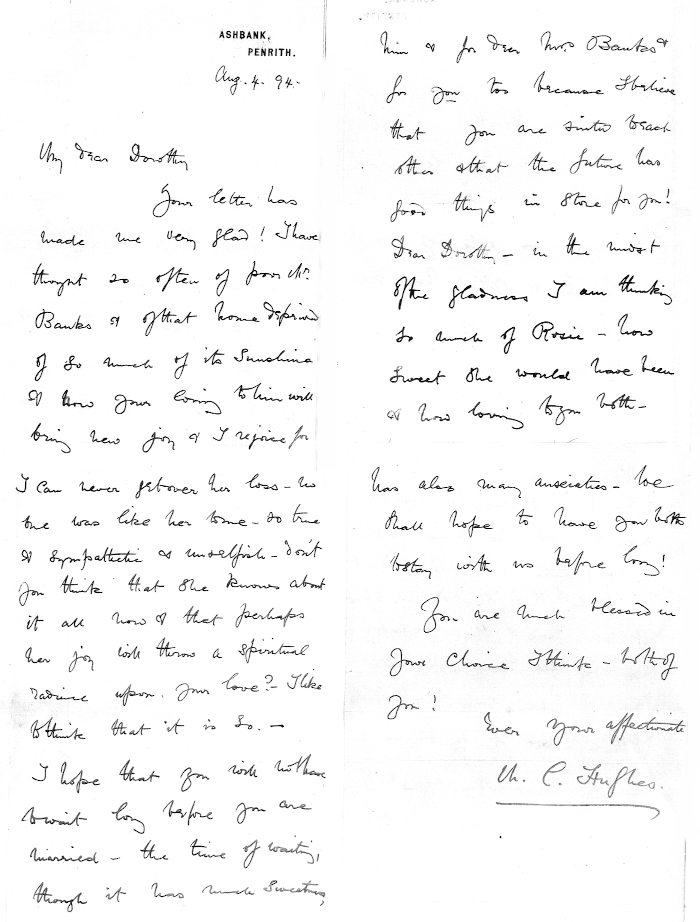 ASHBANK,
PENRITH.
Aug. 4. 94.
My dear Dorothy
Your letter has
made me very glad! I have
thought so often of poor Mr.
Banks & of that home deprived
of so much of its Sunshine
& how your coming to him will
bring new joy & I rejoice for
him & for dear Mrs Banks &
for you too because I believe
that you are suited to each
other & that the future has
good things in store for you!
Dear Dorothy – in the midst
of the gladness I am thinking
so much of Rosie – how
sweet she would have been
& how loving to you both –
I can never get over her loss – no
one was like her to me – so true
& sympathetic & unselfish – don't
you think that she knows about
it all now & that perhaps
her joy will throw a spiritual
radiance upon your love? – I like
to think that it is so. –
I hope that you will not have
to wait long before you are
married – the time of waiting,
though it has much sweetness,
has also many anxieties – We
shall hope to have you both
to stay with us before long!
You are much blessed in
your choice I think – both of
you!
Ever your affectionate
M. C. Hughes.